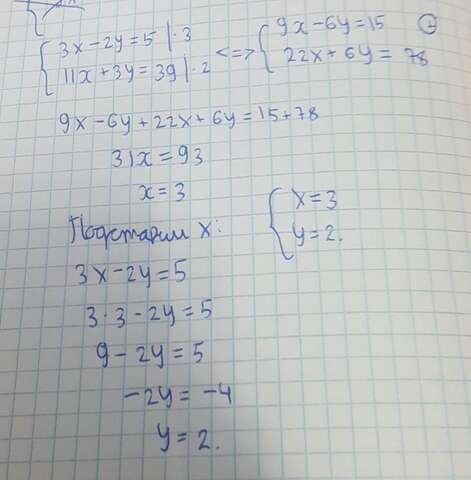 { 3x-2y=5 |·3 <=> { 9x-6y=15 (+)
11x+3y=39 |·2 22x+6y=78
9x-6y+22x+6y=15+78
31x=93
x=3
Подставим x:
3x-2y=5
3·3-2y=5
9-2y=5
-2y=-4
y=2.
{ x=3
y=2.